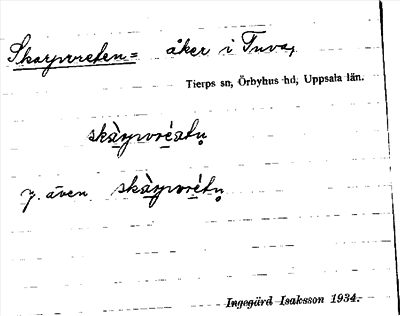 Skarpvreten = åker i Tuva,
Tierps sn, Örbyhus hd, Uppsala län.
skàrpvréatn̥
även skàrpvrétn̥
Ingegärd Isaksson 1934.